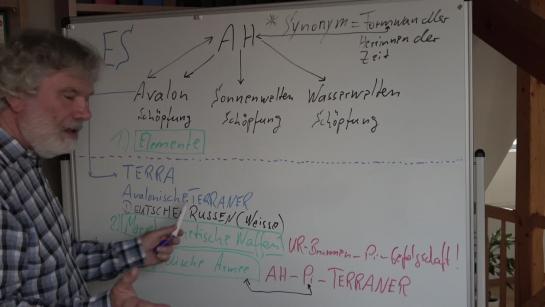 ES AH * Synonym = Formwandler
Herrinnen der
Zeit
Avalon Sonnenwelten Wasserwelten
Schöpfung Schöpfung Schöpfung
1) Elemente
TERRA
Avalonische TERRANER
DEUTSCHE RUSSEN (Weisse)
2) Waffen
UR-Brunnen-Pi-Gefolgschaft!
Armee
AH-Pi-TERRANER